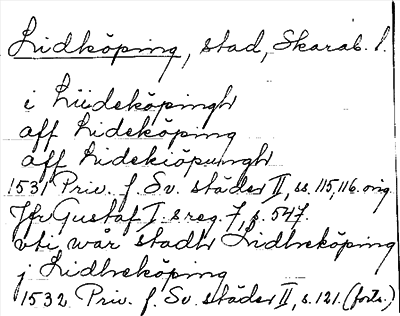 Lidköping, stad, Skarab. l.
i Liideköpingh
aff Lideköping
aff Lidekiöpungh
1531 Priv. f. Sv. städer II, ss. 115, 116. orig.
Jfr Gustaf I:s reg. 7, s. 547.
vti wår stadh Lidheköping
j Lidheköping
1532 Priv. f. Sv. städer II, s. 121. (forts.)